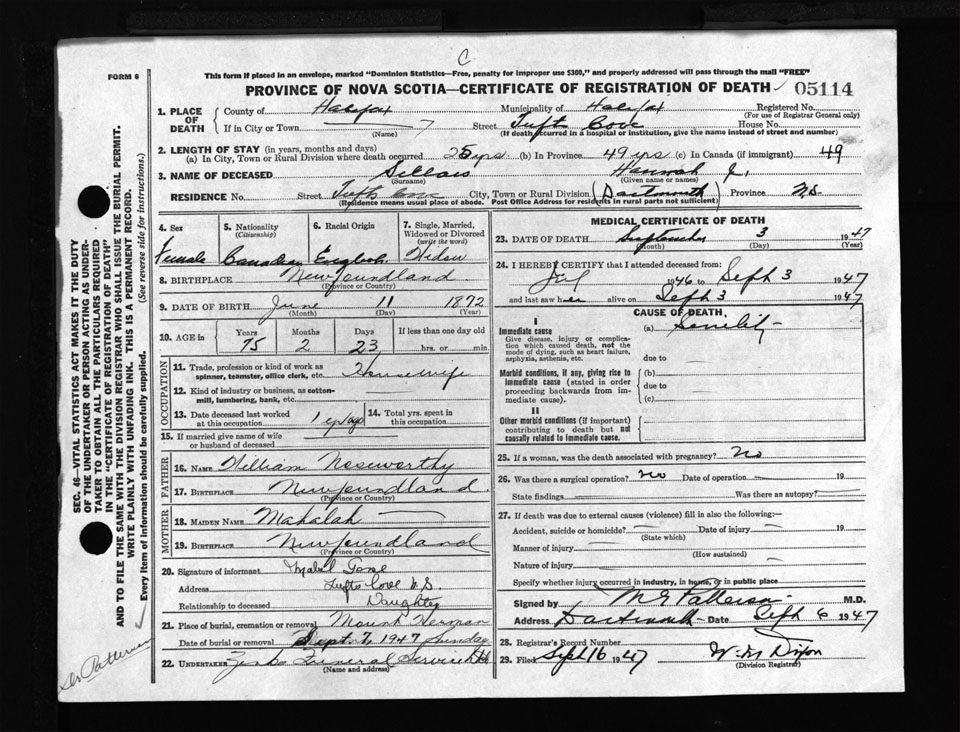 C
FORM 6
This form if placed in an envelope, marked "Dominion Statistics—Free, penalty for improper use $300," and properly addressed will pass through the mail "FREE"
PROVINCE OF NOVA SCOTIA—CERTIFICATE OF REGISTRATION OF DEATH 05114
1. PLACE OF DEATH County of Halifax Municipality of Halifax Registered No.
(For use of Registrar General only)
If in City or Town (Name) Street Tufts Cove House No.
(If death occurred in a hospital or institution, give the name instead of street and number)
2. LENGTH OF STAY (in years, months and days)
(a) In City, Town or Rural Division where death occurred 25 yrs. (b) In Province 49 yrs (c) In Canada (if immigrant) 49
3. NAME OF DECEASED Sellars Hannah J.
(Surname) (Given name or names)
RESIDENCE No. Street Tufts Cove City, Town or Rural Division (Dartmouth) Province N.S.
(Residence means usual place of abode. Post Office Address for residents in rural parts not sufficient)
4. Sex 5. Nationality (Citizenship) 6. Racial Origin 7. Single, Married, Widowed or Divorced (write the word)
Female Canadian English Widow
8. BIRTHPLACE Newfoundland
(Province or Country)
9. DATE OF BIRTH June 11 1872
(Month) (Day) (Year)
10. AGE in Years Months Days If less than one day old
75 2 23 hrs. or min.
OCCUPATION
11. Trade, profession or kind of work as spinner, teamster, office clerk, etc. Housewife
12. Kind of industry or business, as cotton-mill, lumbering, bank, etc.
13. Date deceased last worked at this occupation 14. Total yrs. spent in this occupation
15. If married give name of wife or husband of deceased
FATHER
16. NAME William Noseworthy
17. BIRTHPLACE Newfoundland
(Province or Country)
MOTHER
18. MAIDEN NAME Mahalah
19. BIRTHPLACE Newfoundland
(Province or Country)
20. Signature of informant
Address Tufts Cove N.S.
Relationship to deceased Daughter
21. Place of burial, cremation or removal Mount Herman
Date of burial or removal Sept. 7, 1947 Sunday
22. UNDERTAKER Funeral Service
(Name and address)
MEDICAL CERTIFICATE OF DEATH
23. DATE OF DEATH September 3 1947
(Month) (Day) (Year)
24. I HEREBY CERTIFY that I attended deceased from:
1946 to Sept 3 1947
and last saw her alive on Sept 3 1947
CAUSE OF DEATH
I
Immediate cause (a) Senility
Give disease, injury or complication which caused death, not the mode of dying, such as heart failure, asphyxia, asthenia, etc.
due to
Morbid conditions, if any, giving rise to immediate cause (stated in order proceeding backwards from immediate cause). (b)
due to
(c)
II
Other morbid conditions (if important) contributing to death but not causally related to immediate cause.
25. If a woman, was the death associated with pregnancy? No
26. Was there a surgical operation? No Date of operation 19
State findings Was there an autopsy?
27. If death was due to external causes (violence) fill in also the following:—
Accident, suicide or homicide? Date of injury 19
(State which)
Manner of injury
(How sustained)
Nature of injury
Specify whether injury occurred in industry, in home, or in public place
Signed by M G Patterson M.D.
Address Dartmouth Date Sept 6 1947
28. Registrar's Record Number
29. Filed Sept 16 1947 W. M. Dixon
(Division Registrar)
SEC. 46—VITAL STATISTICS ACT MAKES IT THE DUTY
OF THE UNDERTAKER OR PERSON ACTING AS UNDER-
TAKER TO OBTAIN ALL THE PARTICULARS REQUIRED
IN THE "CERTIFICATE OF REGISTRATION OF DEATH"
AND TO FILE THE SAME WITH THE DIVISION REGISTRAR WHO SHALL ISSUE THE BURIAL PERMIT.
WRITE PLAINLY WITH UNFADING INK. THIS IS A PERMANENT RECORD.
Every item of information should be carefully supplied. (See reverse side for instructions.)
Dr Patterson